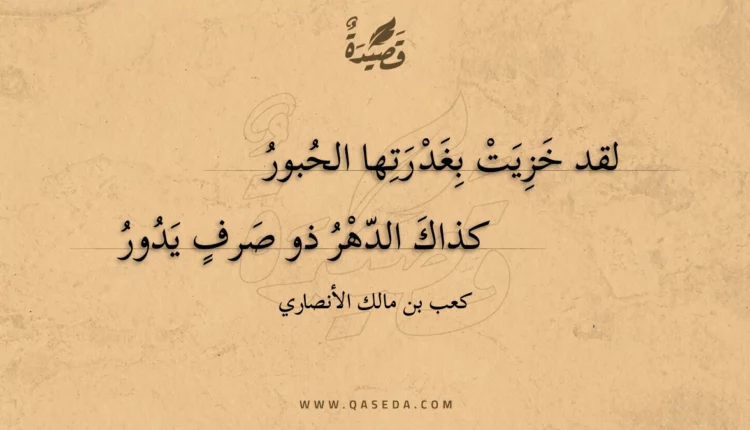 قَصِيدَةٌ
لقد خَزِيَتْ بِغَدْرَتِها الحُبورُ
كذاكَ الدّهْرُ ذو صَرفٍ يَدُورُ
كعب بن مالك الأنصاري
WWW.QASEDA.COM